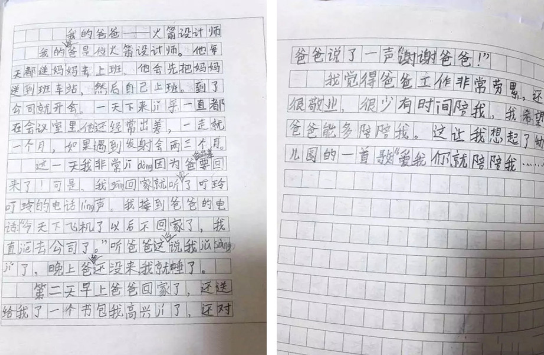 我的爸爸——火箭设计师
我的爸是位火箭设计师。他每
天都送妈妈去上班。他会先把妈妈
送到班车站，然后自己上班。到了
公司就开会。一天下来几乎一直都
在会议室里。他还经常出差，一走就
一个月。如果遇到发射会两三个月
这一天我非常jī dòng因为爸要回
来了！可是，我回家就听了叮玲
叮玲的电话líng声，我接到爸爸的电
话“今天下飞机了以后不回家了，我
直法去公司了。”听爸爸这说我
了，晚上爸还没来我就睡了。
第二天早上爸爸回家了，还送
给我了一个书包我高兴jí了，还对
爸爸说了一声“谢谢爸爸！”
我觉得爸爸工作非常劳累，还
很敬业，很少有时间陪我，我希望
爸爸能多陪陪我。这让我想起了幼
儿园的一首歌“爱我你就陪陪我……